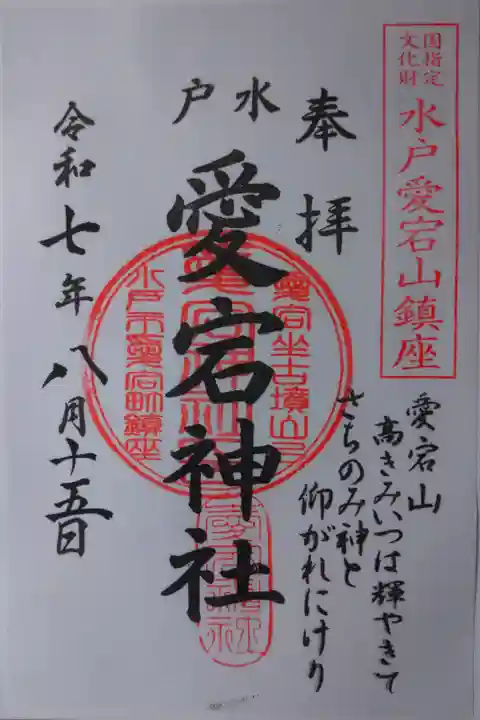 国指定
文化財
水戸愛宕山鎮座
奉拝
愛宕山
高きみいつは輝やきて
さちのみ神と
仰がれにけり
水戸
愛宕神社
愛宕神社
水戸市愛宕町鎮座
令和七年八月十五日